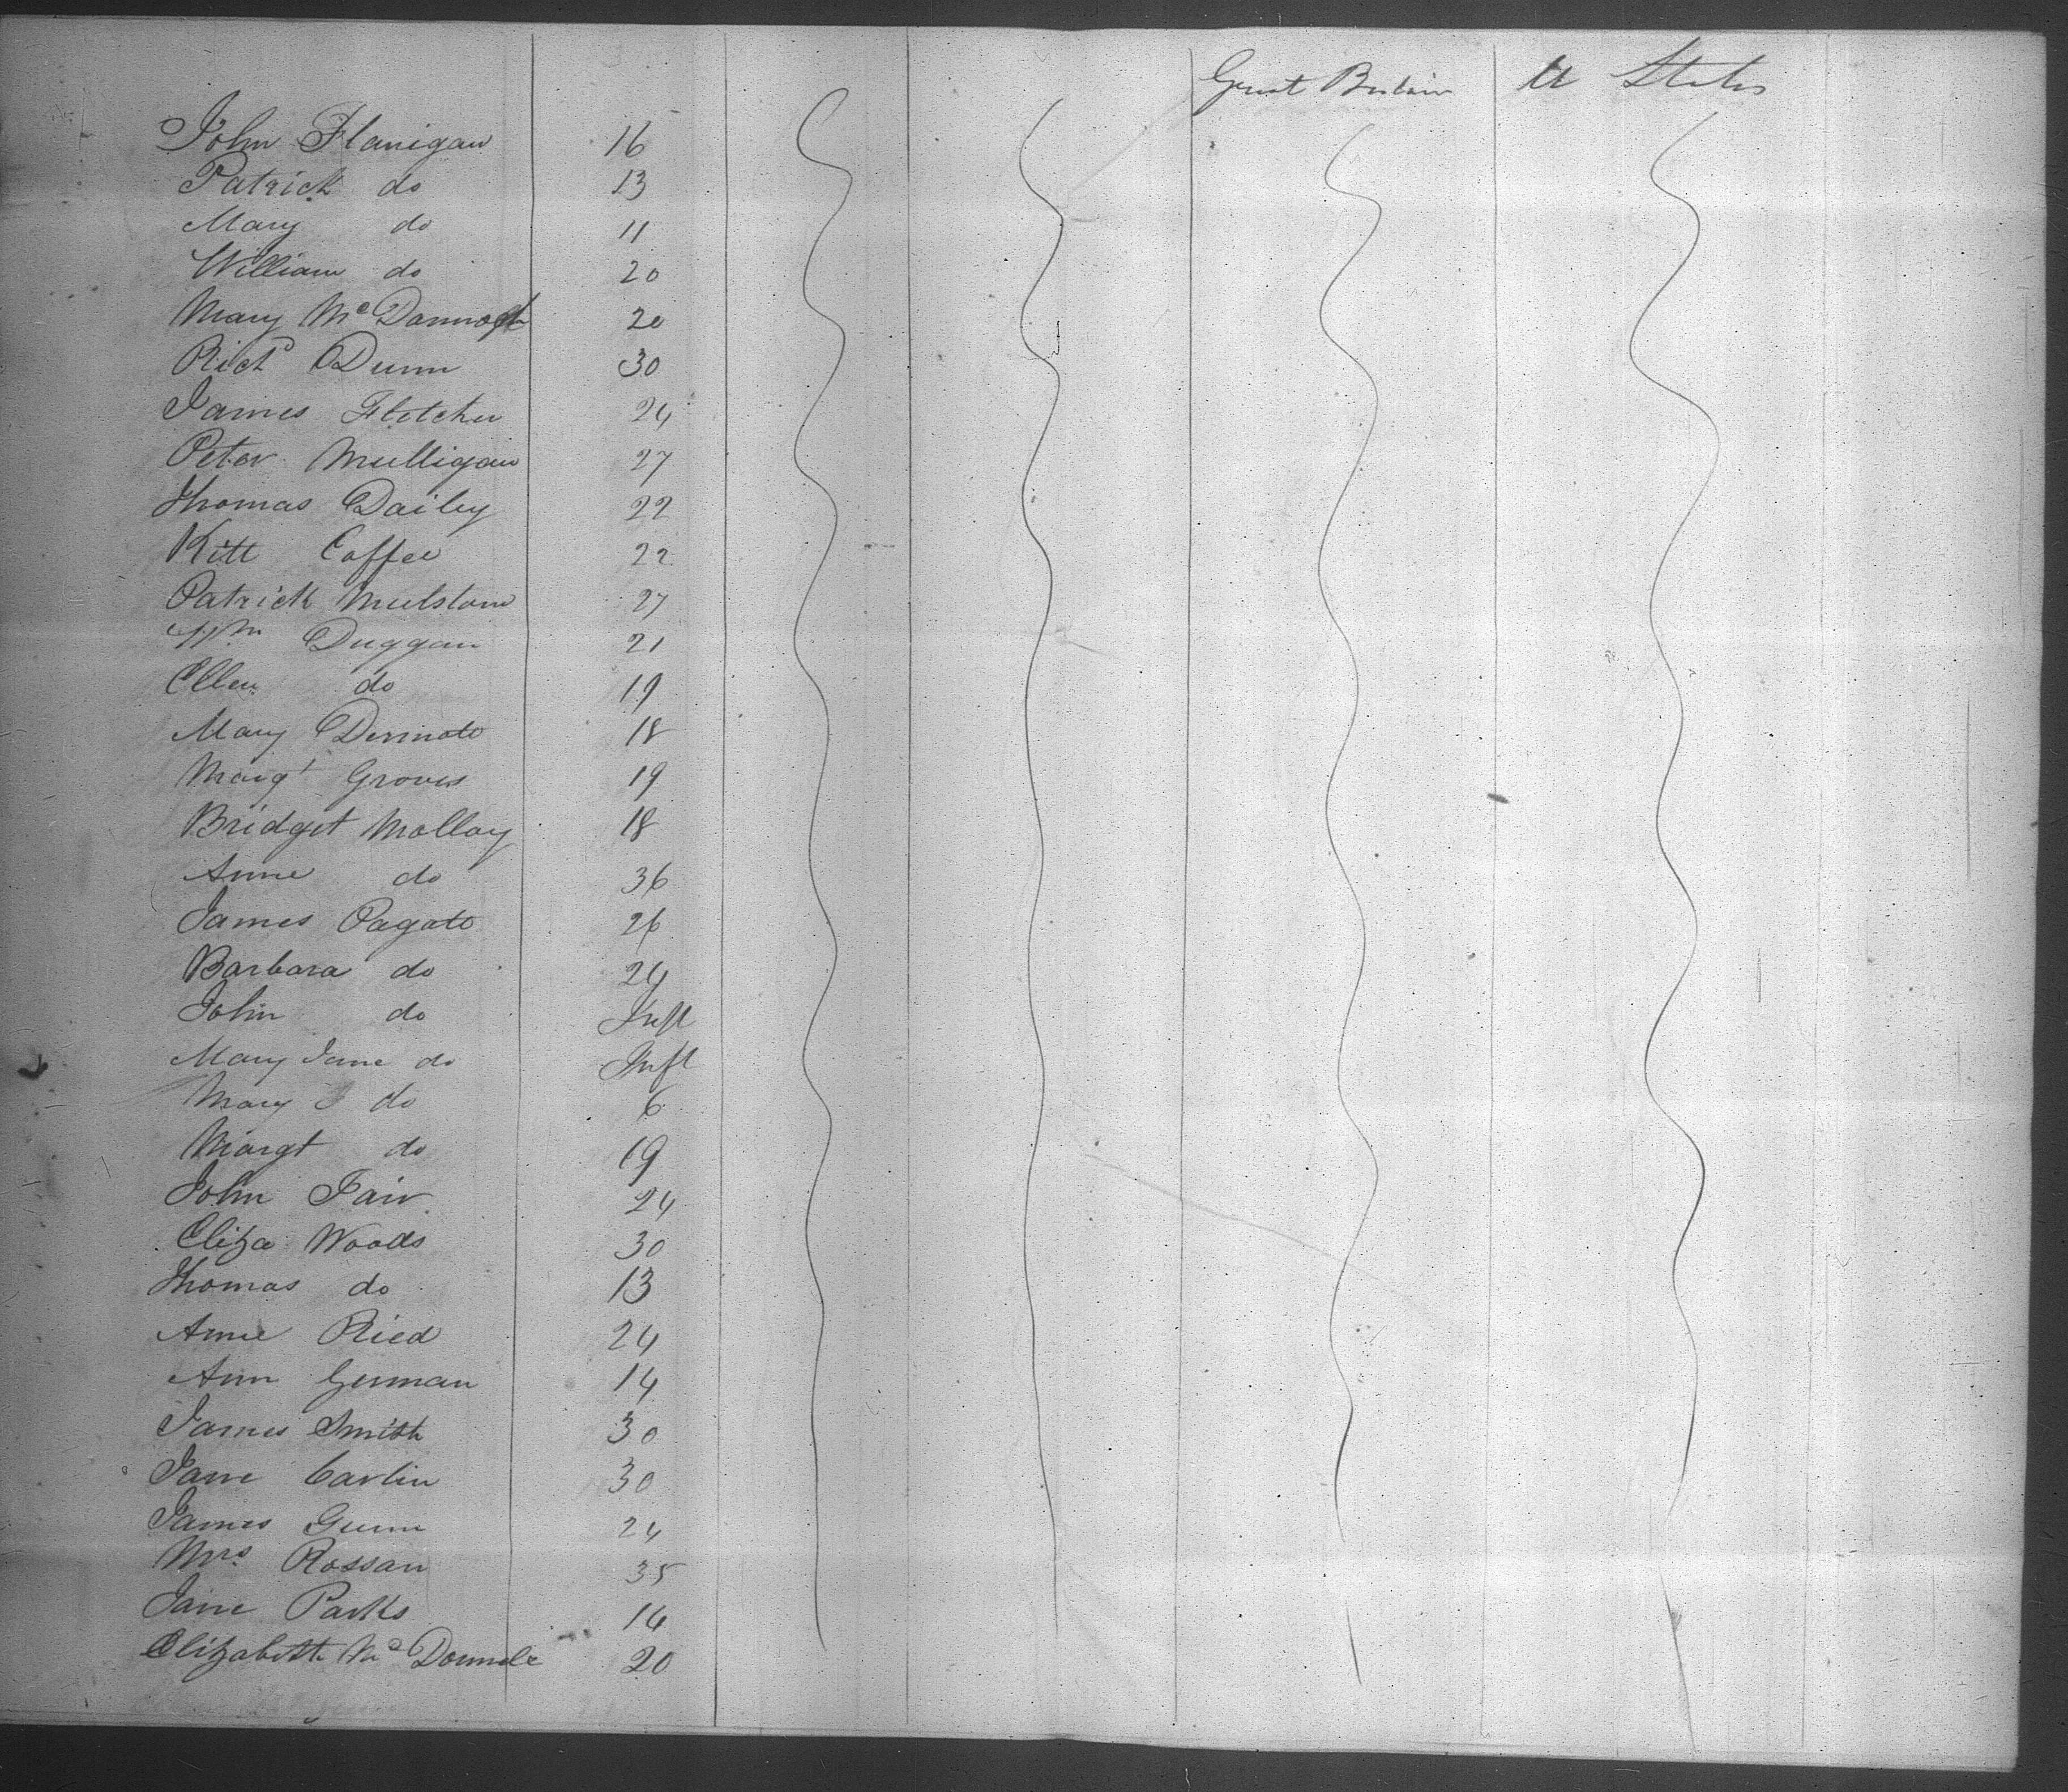 Great Britain U States
John Flanigan 16
Patrick do 13
Mary do 11
William do 20
Mary McDonnogh 20
Richd Dunn 30
James Fletcher 24
Peter Mulligan 27
Thomas Dailey 22
Kitt Coffee 22
Patrick 27
Wm Duggan 21
Ellen do 19
Mary Dermott 18
Margt Groves 19
Bridget Molloy 18
Anne do 36
James Pagott 26
Barbara do 24
John do Inft
Mary Jane do Inft
Mary do 6
Margt do 19
John Fair 24
Eliza Woods 30
Thomas do 13
Anne Ried 24
Ann German 14
James Smith 30
Jane Carlin 30
James Gunn 24
Mrs Rossan 35
Jane Parks 14
Elizabeth 20